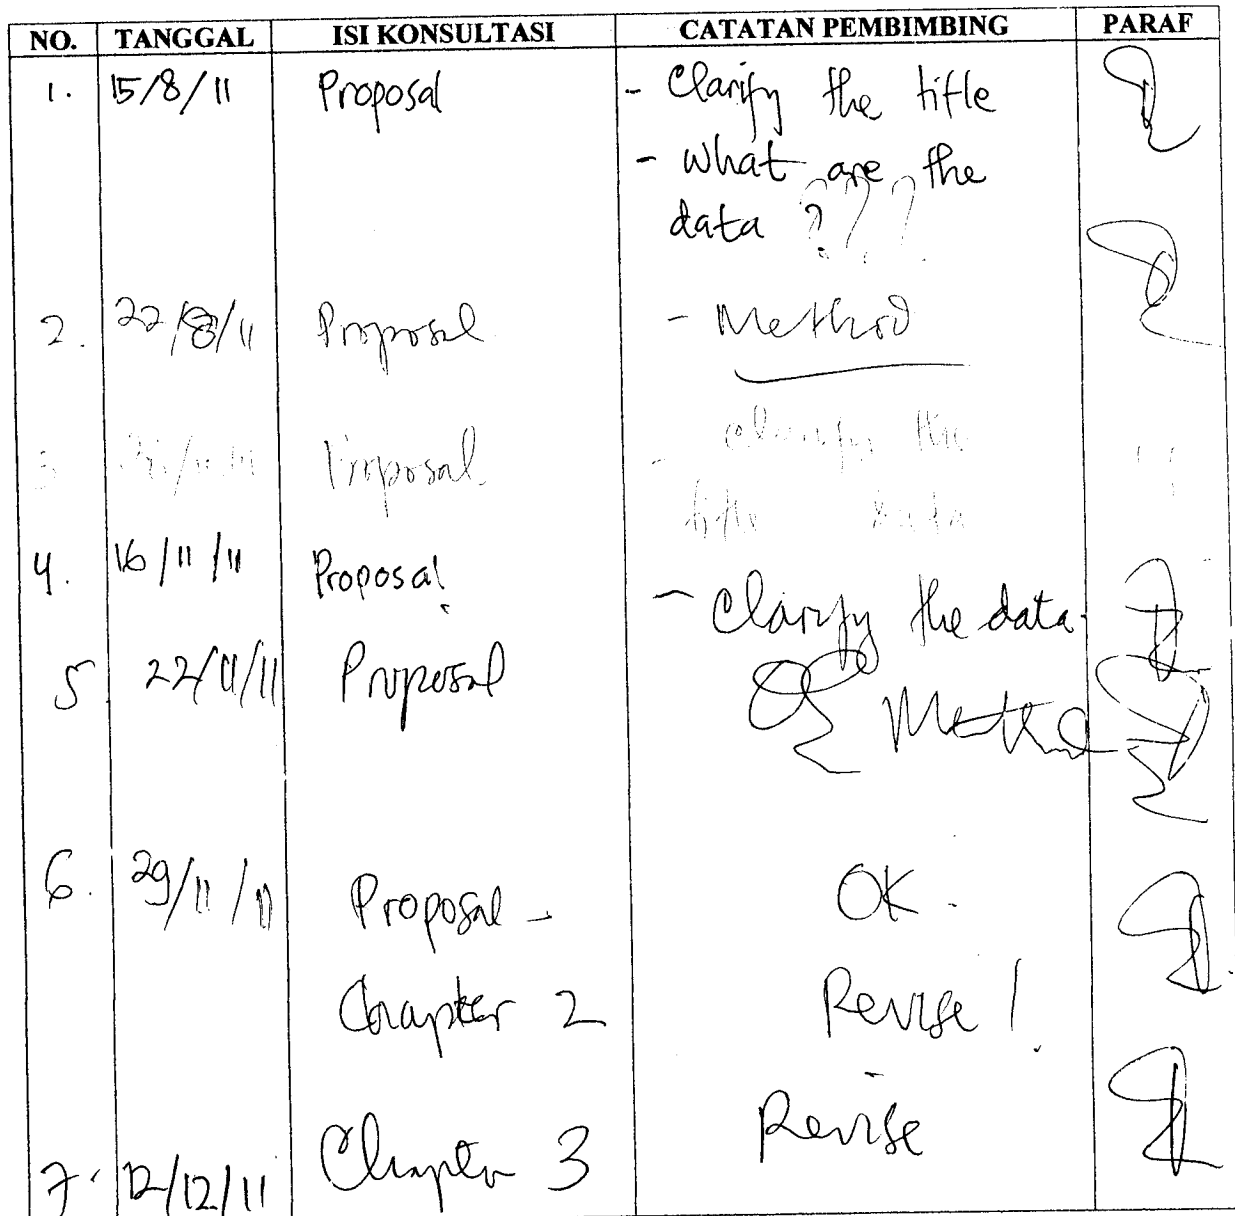 NO. TANGGAL ISI KONSULTASI CATATAN PEMBIMBING PARAF
1. 15/8/11 Proposal - Clarify the title
- What are the
data ???
2. 22/8/11 Proposal - Method
3 Proposal - clarify the
title data
4. 16/11/11 Proposal - Clarify the data
5 22/11/11 Proposal Method
6. 29/11/11 Proposal - OK.
Chapter 2 Revise!
7. 12/12/11 Chapter 3 Revise